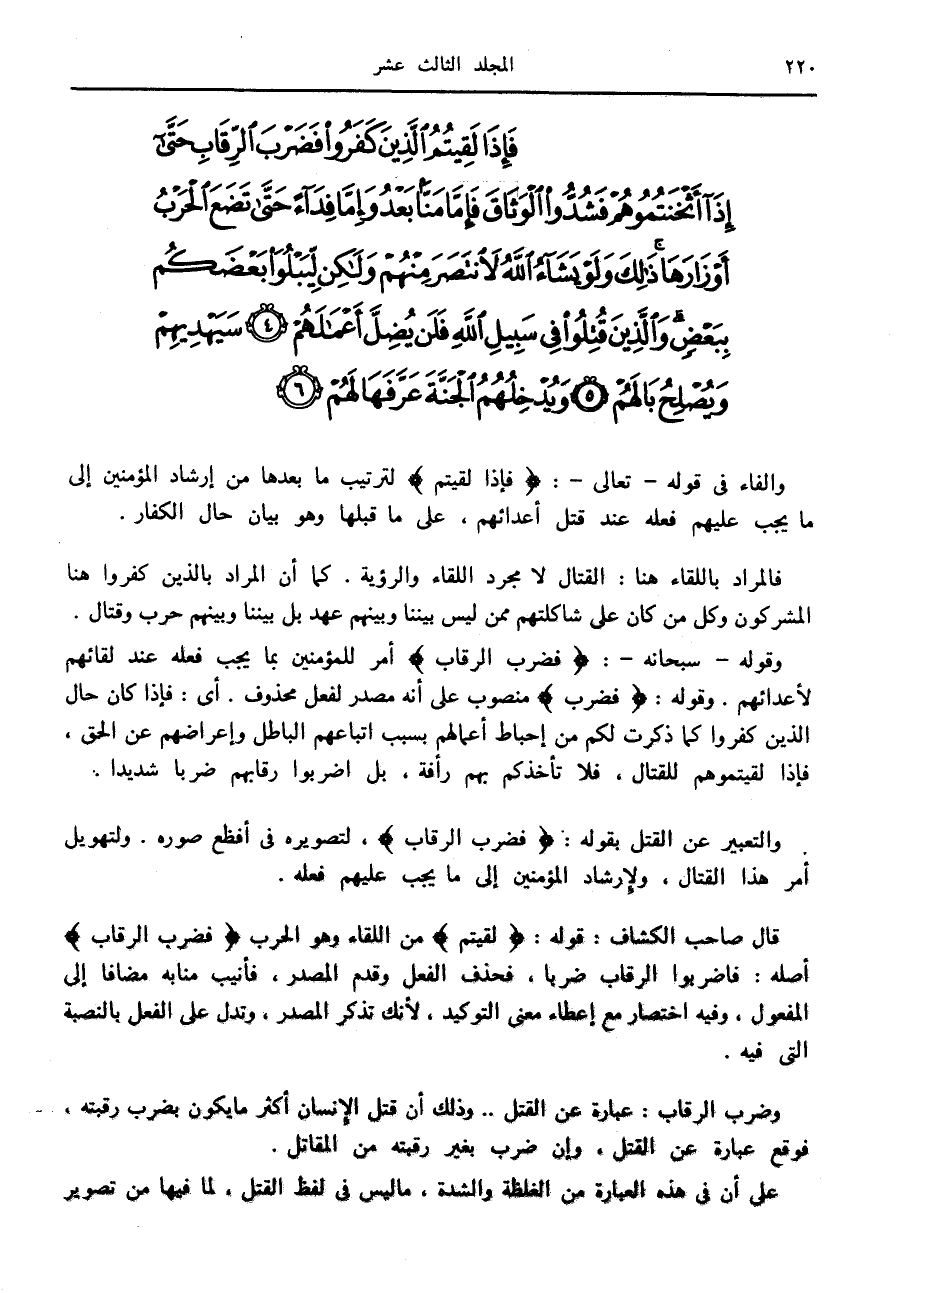 ٢٢٠ المجلد الثالث عشر
فَإِذَا لَقِيتُمُ ٱلَّذِينَ كَفَرُوا۟ فَضَرْبَ ٱلرِّقَابِ حَتَّىٰٓ
إِذَآ أَثْخَنتُمُوهُمْ فَشُدُّوا۟ ٱلْوَثَاقَ فَإِمَّا مَنًّۢا بَعْدُ وَإِمَّا فِدَآءً حَتَّىٰ تَضَعَ ٱلْحَرْبُ
أَوْزَارَهَا ۚ ذَٰلِكَ وَلَوْ يَشَآءُ ٱللَّهُ لَٱنتَصَرَ مِنْهُمْ وَلَٰكِن لِّيَبْلُوَا۟ بَعْضَكُم
بِبَعْضٍ ۗ وَٱلَّذِينَ قُتِلُوا۟ فِى سَبِيلِ ٱللَّهِ فَلَن يُضِلَّ أَعْمَٰلَهُمْ ٤ سَيَهْدِيهِمْ
وَيُصْلِحُ بَالَهُمْ ٥ وَيُدْخِلُهُمُ ٱلْجَنَّةَ عَرَّفَهَا لَهُمْ ٦
والفاء فى قوله - تعالى - : ﴿ فإذا لقيتم ﴾ لترتيب ما بعدها من إرشاد المؤمنين إلى
ما يجب عليهم فعله عند قتل أعدائهم ، على ما قبلها وهو بيان حال الكفار .
فالمراد باللقاء هنا : القتال لا مجرد اللقاء والرؤية . كما أن المراد بالذين كفروا هنا
المشركون وكل من كان على شاكلتهم ممن ليس بيننا وبينهم عهد بل بيننا وبينهم حرب وقتال .
وقوله - سبحانه - : ﴿ فضرب الرقاب ﴾ أمر للمؤمنين بما يجب فعله عند لقائهم
لأعدائهم . وقوله : ﴿ فضرب ﴾ منصوب على أنه مصدر لفعل محذوف . أى : فإذا كان حال
الذين كفروا كما ذكرت لكم من إحباط أعمالهم بسبب اتباعهم الباطل وإعراضهم عن الحق ،
فإذا لقيتموهم للقتال ، فلا تأخذكم بهم رأفة ، بل اضربوا رقابهم ضربا شديدا .
والتعبير عن القتل بقوله : ﴿ فضرب الرقاب ﴾ ، لتصويره فى أفظع صوره . ولتهويل
أمر هذا القتال ، ولإرشاد المؤمنين إلى ما يجب عليهم فعله .
قال صاحب الكشاف : قوله : ﴿ لقيتم ﴾ من اللقاء وهو الحرب ﴿ فضرب الرقاب ﴾
أصله : فاضربوا الرقاب ضربا ، فحذف الفعل وقدم المصدر ، فأنيب منابه مضافا إلى
المفعول ، وفيه اختصار مع إعطاء معنى التوكيد ، لأنك تذكر المصدر ، وتدل على الفعل بالنصبة
التى فيه .
وضرب الرقاب : عبارة عن القتل .. وذلك أن قتل الإنسان أكثر مايكون بضرب رقبته ،
فوقع عبارة عن القتل ، وإن ضرب بغير رقبته من المقاتل .
على أن فى هذه العبارة من الغلظة والشدة ، ماليس فى لفظ القتل ، لما فيها من تصوير